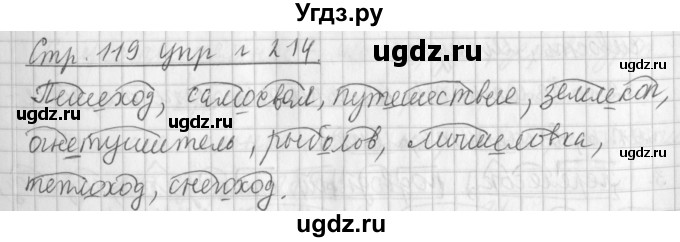 Угдз.ру
Стр. 119 упр г 214.
ugdz.ru ugdz.ru
Пешеход, самосвал, путешествие, землекоп,
огнетушитель, рыболов, мышеловка,
ugdz.ru
теплоход, снегоход.
ugdz.ru ugdz.ru